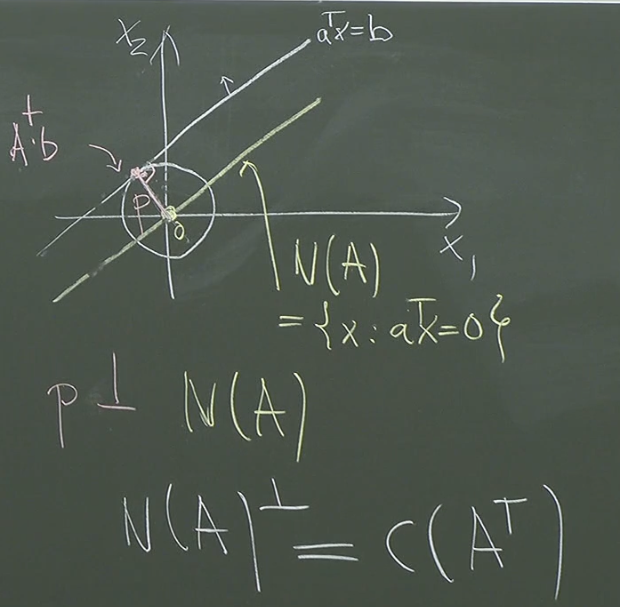 x₂
aᵀx=b
A⁺b
p
0
x₁
N(A)
={x: aᵀx=0}
p ⊥ N(A)
N(A)^⊥ = C(Aᵀ)